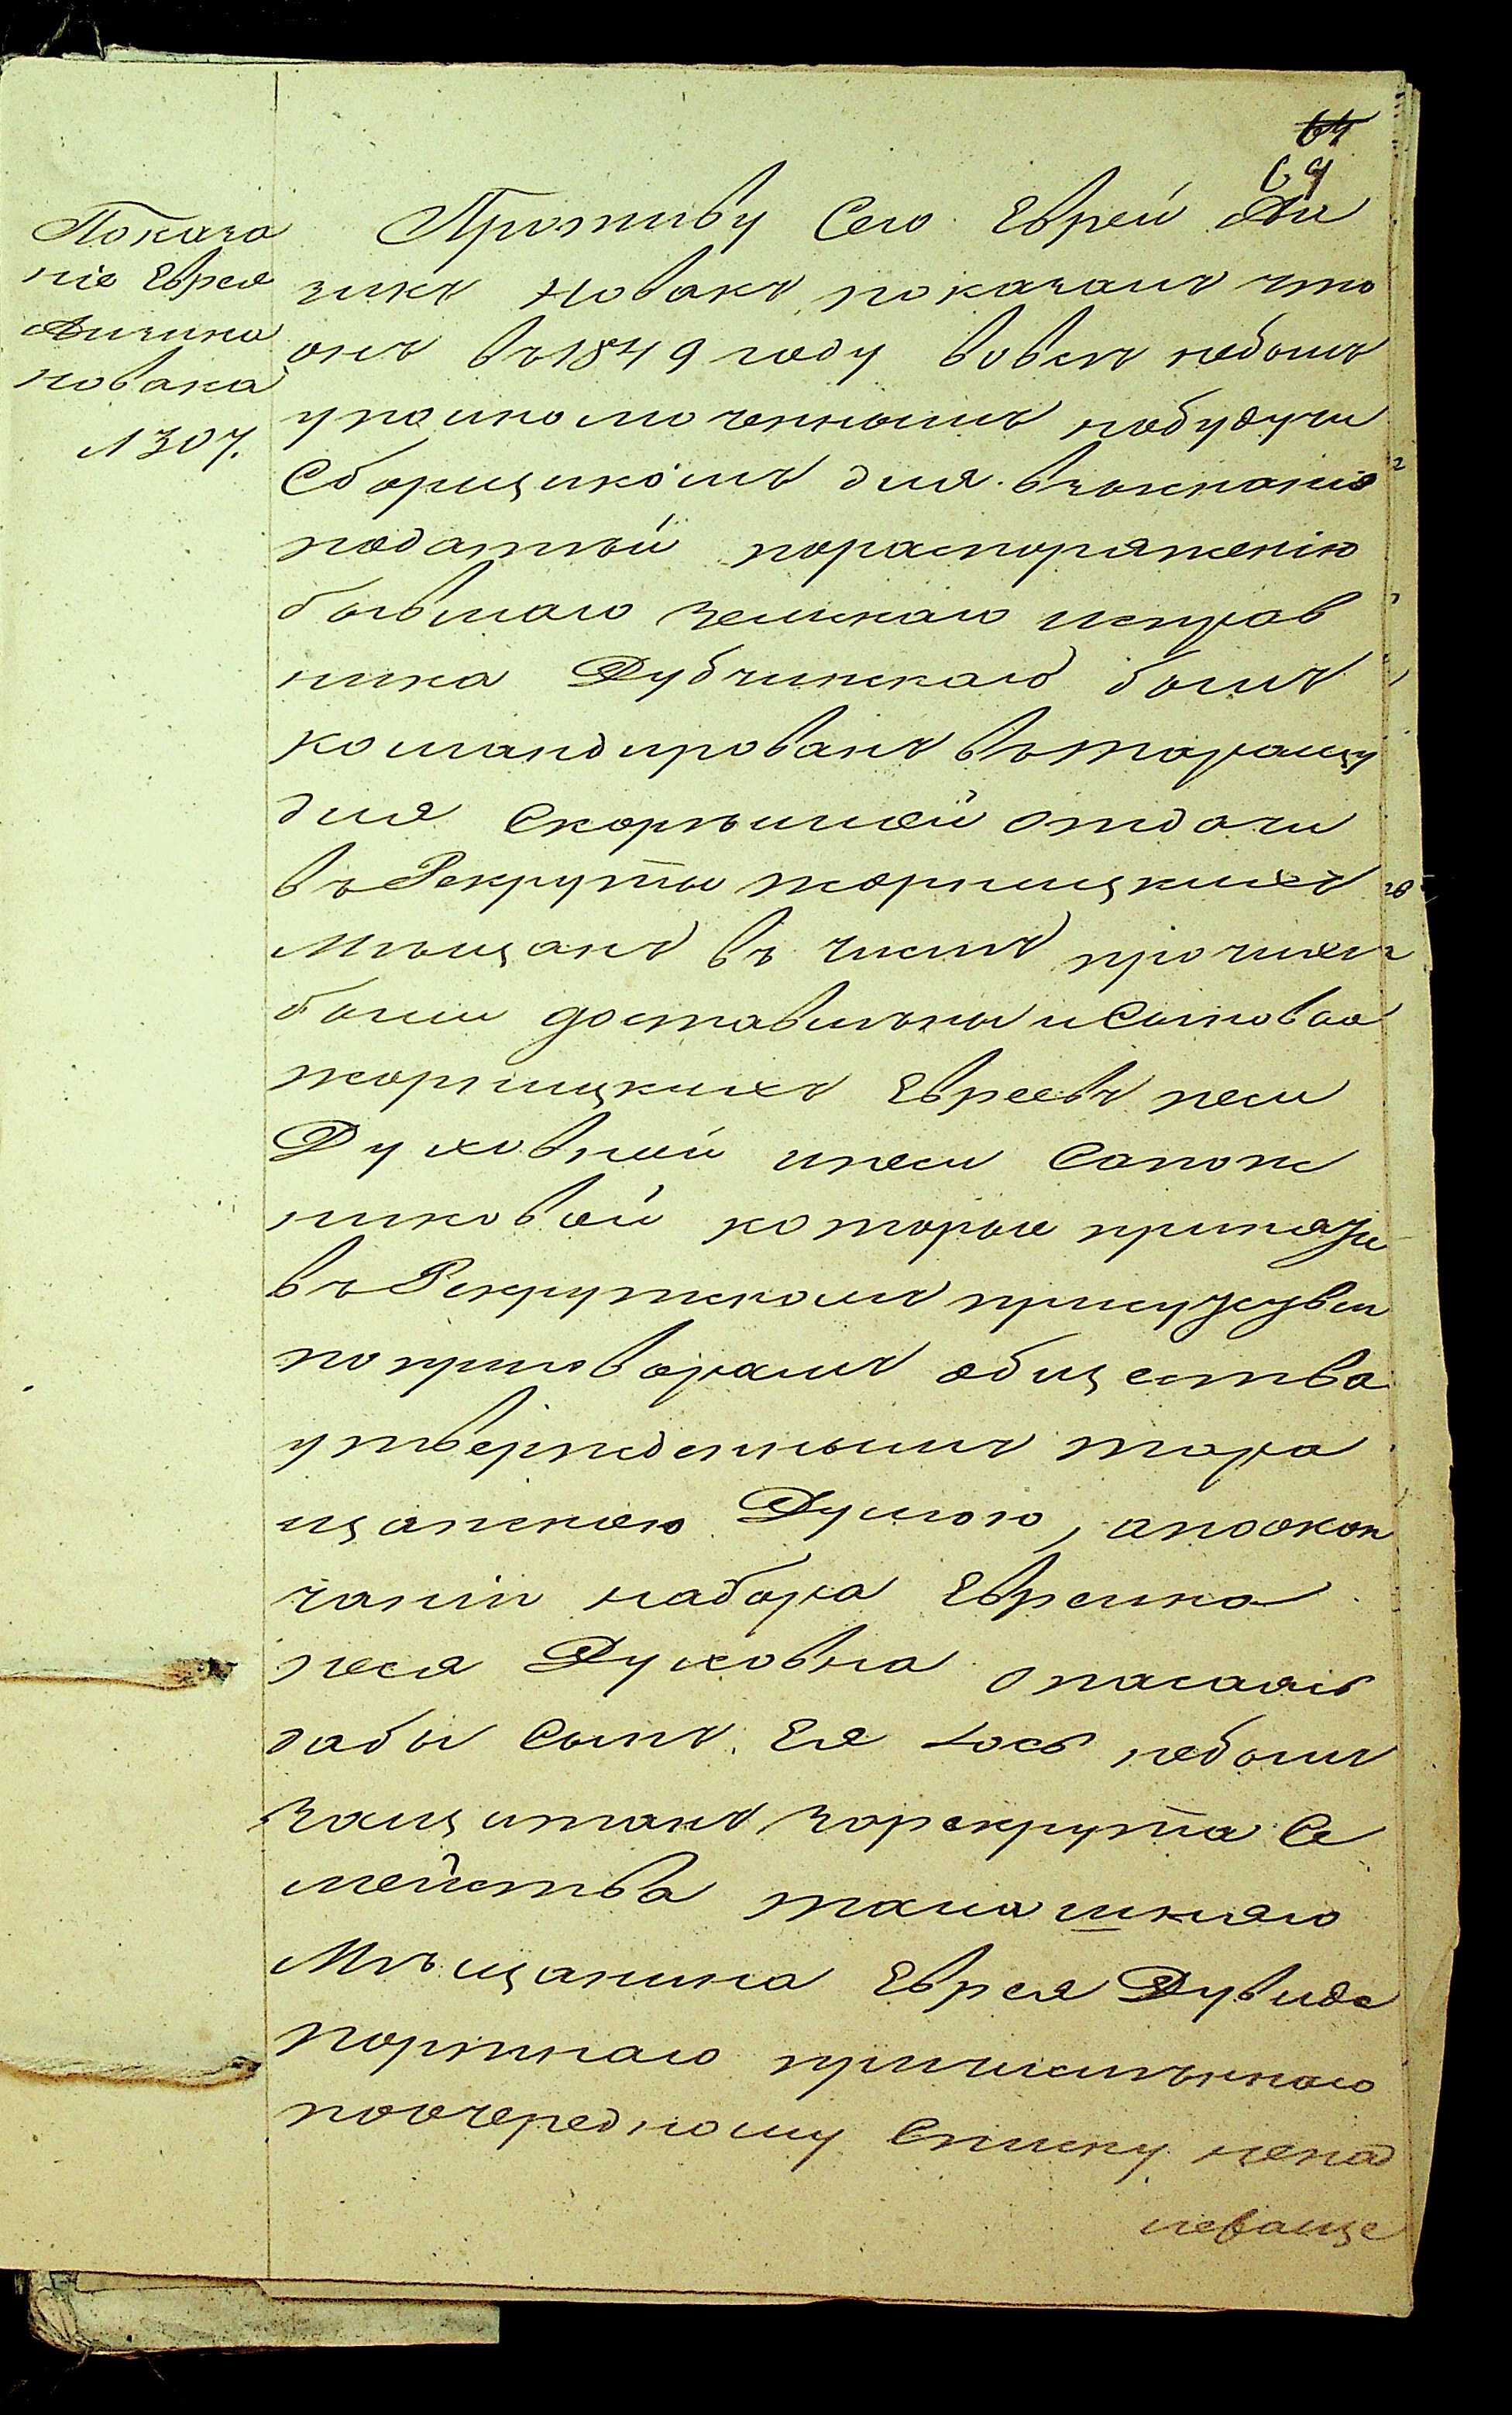 64
69
Показа
ніе Еврея
Аизика
новака
л 307.
Противу Сего Еврей Аи
зикъ Новакъ показалъ что
онъ въ 1849 году вовсѣ небылъ
уполномоченнымъ небудучи
Сборщикомъ для взысканія
податѣй пораспоряженію
бывшаго земскаго исправ
ника Дубчинскаго былъ
командированъ въ таращу
для Скорѣйшей отдачи
въ Рекруты жорнищкихъ
Мѣщанъ въ числѣ прочихъ
были доставлѣны и Сыновья
жорнищкихъ Евреевъ песи
Духовней ипеси Сапож
никовой которые приняты
въ Рекрутскомъ присуствіи
поприговорамъ общества
утвержденнымъ тара
щанскою Думою, апоокон
чаніи набора Еврейка
песя Духовна опасаясь
дабы Сынъ Ея Іось небылъ
защитанъ зарекрута Се
мейства
Мѣщанина Еврея Дувида
портнаго причислѣннаго
поочередному Списку ненад
леваще